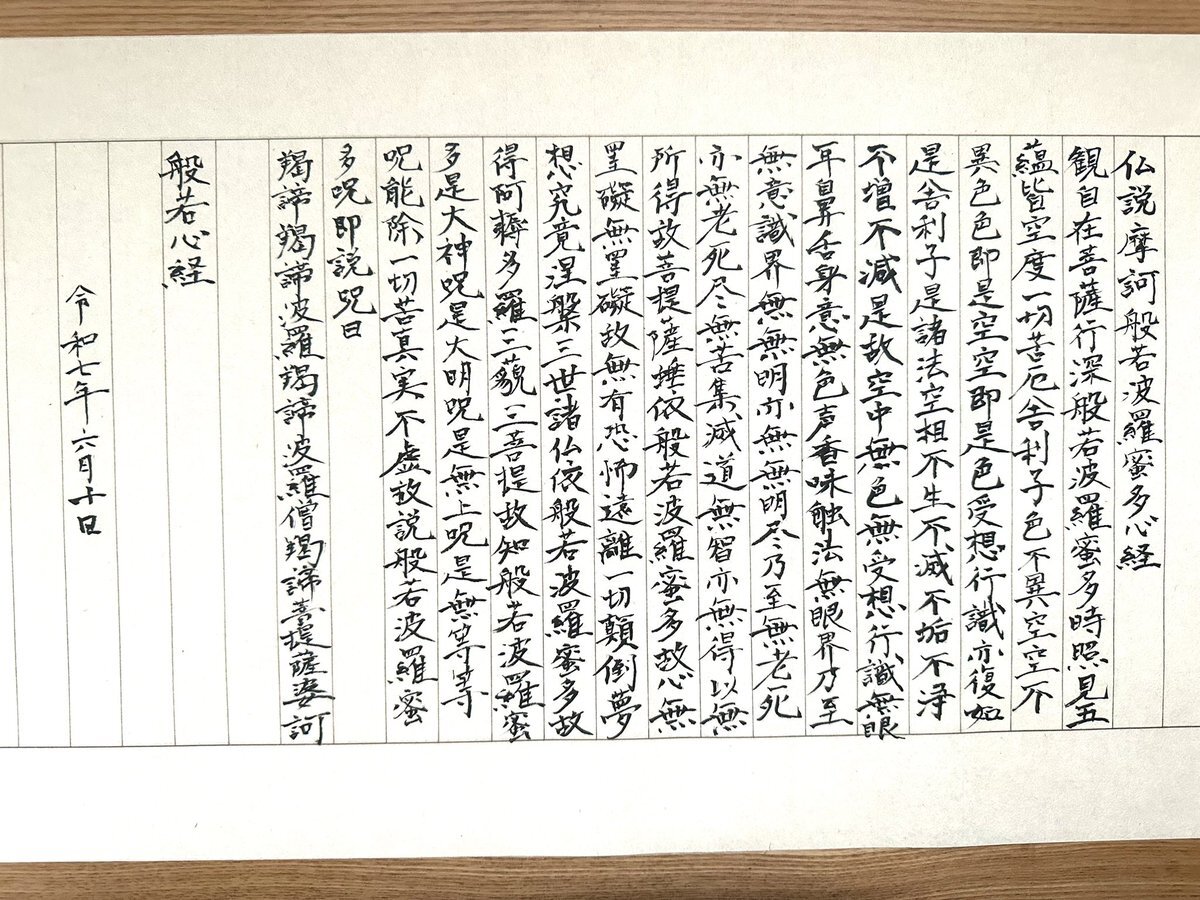 仏説摩訶般若波羅蜜多心経
観自在菩薩行深般若波羅蜜多時照見五
蘊皆空度一切苦厄舎利子色不異空空不
異色色即是空空即是色受想行識亦復如
是舎利子是諸法空相不生不滅不垢不浄
不増不減是故空中無色無受想行識無眼
耳鼻舌身意無色声香味触法無眼界乃至
無意識界無無明亦無無明尽乃至無老死
亦無老死尽無苦集滅道無智亦無得以無
所得故菩提薩埵依般若波羅蜜多故心無
罣礙無罣礙故無有恐怖遠離一切顛倒夢
想究竟涅槃三世諸仏依般若波羅蜜多故
得阿耨多羅三藐三菩提故知般若波羅蜜
多是大神呪是大明呪是無上呪是無等等
呪能除一切苦真実不虚故説般若波羅蜜
多呪即説呪曰
羯諦羯諦波羅羯諦波羅僧羯諦菩提薩婆訶
般若心経
令和七年六月十日